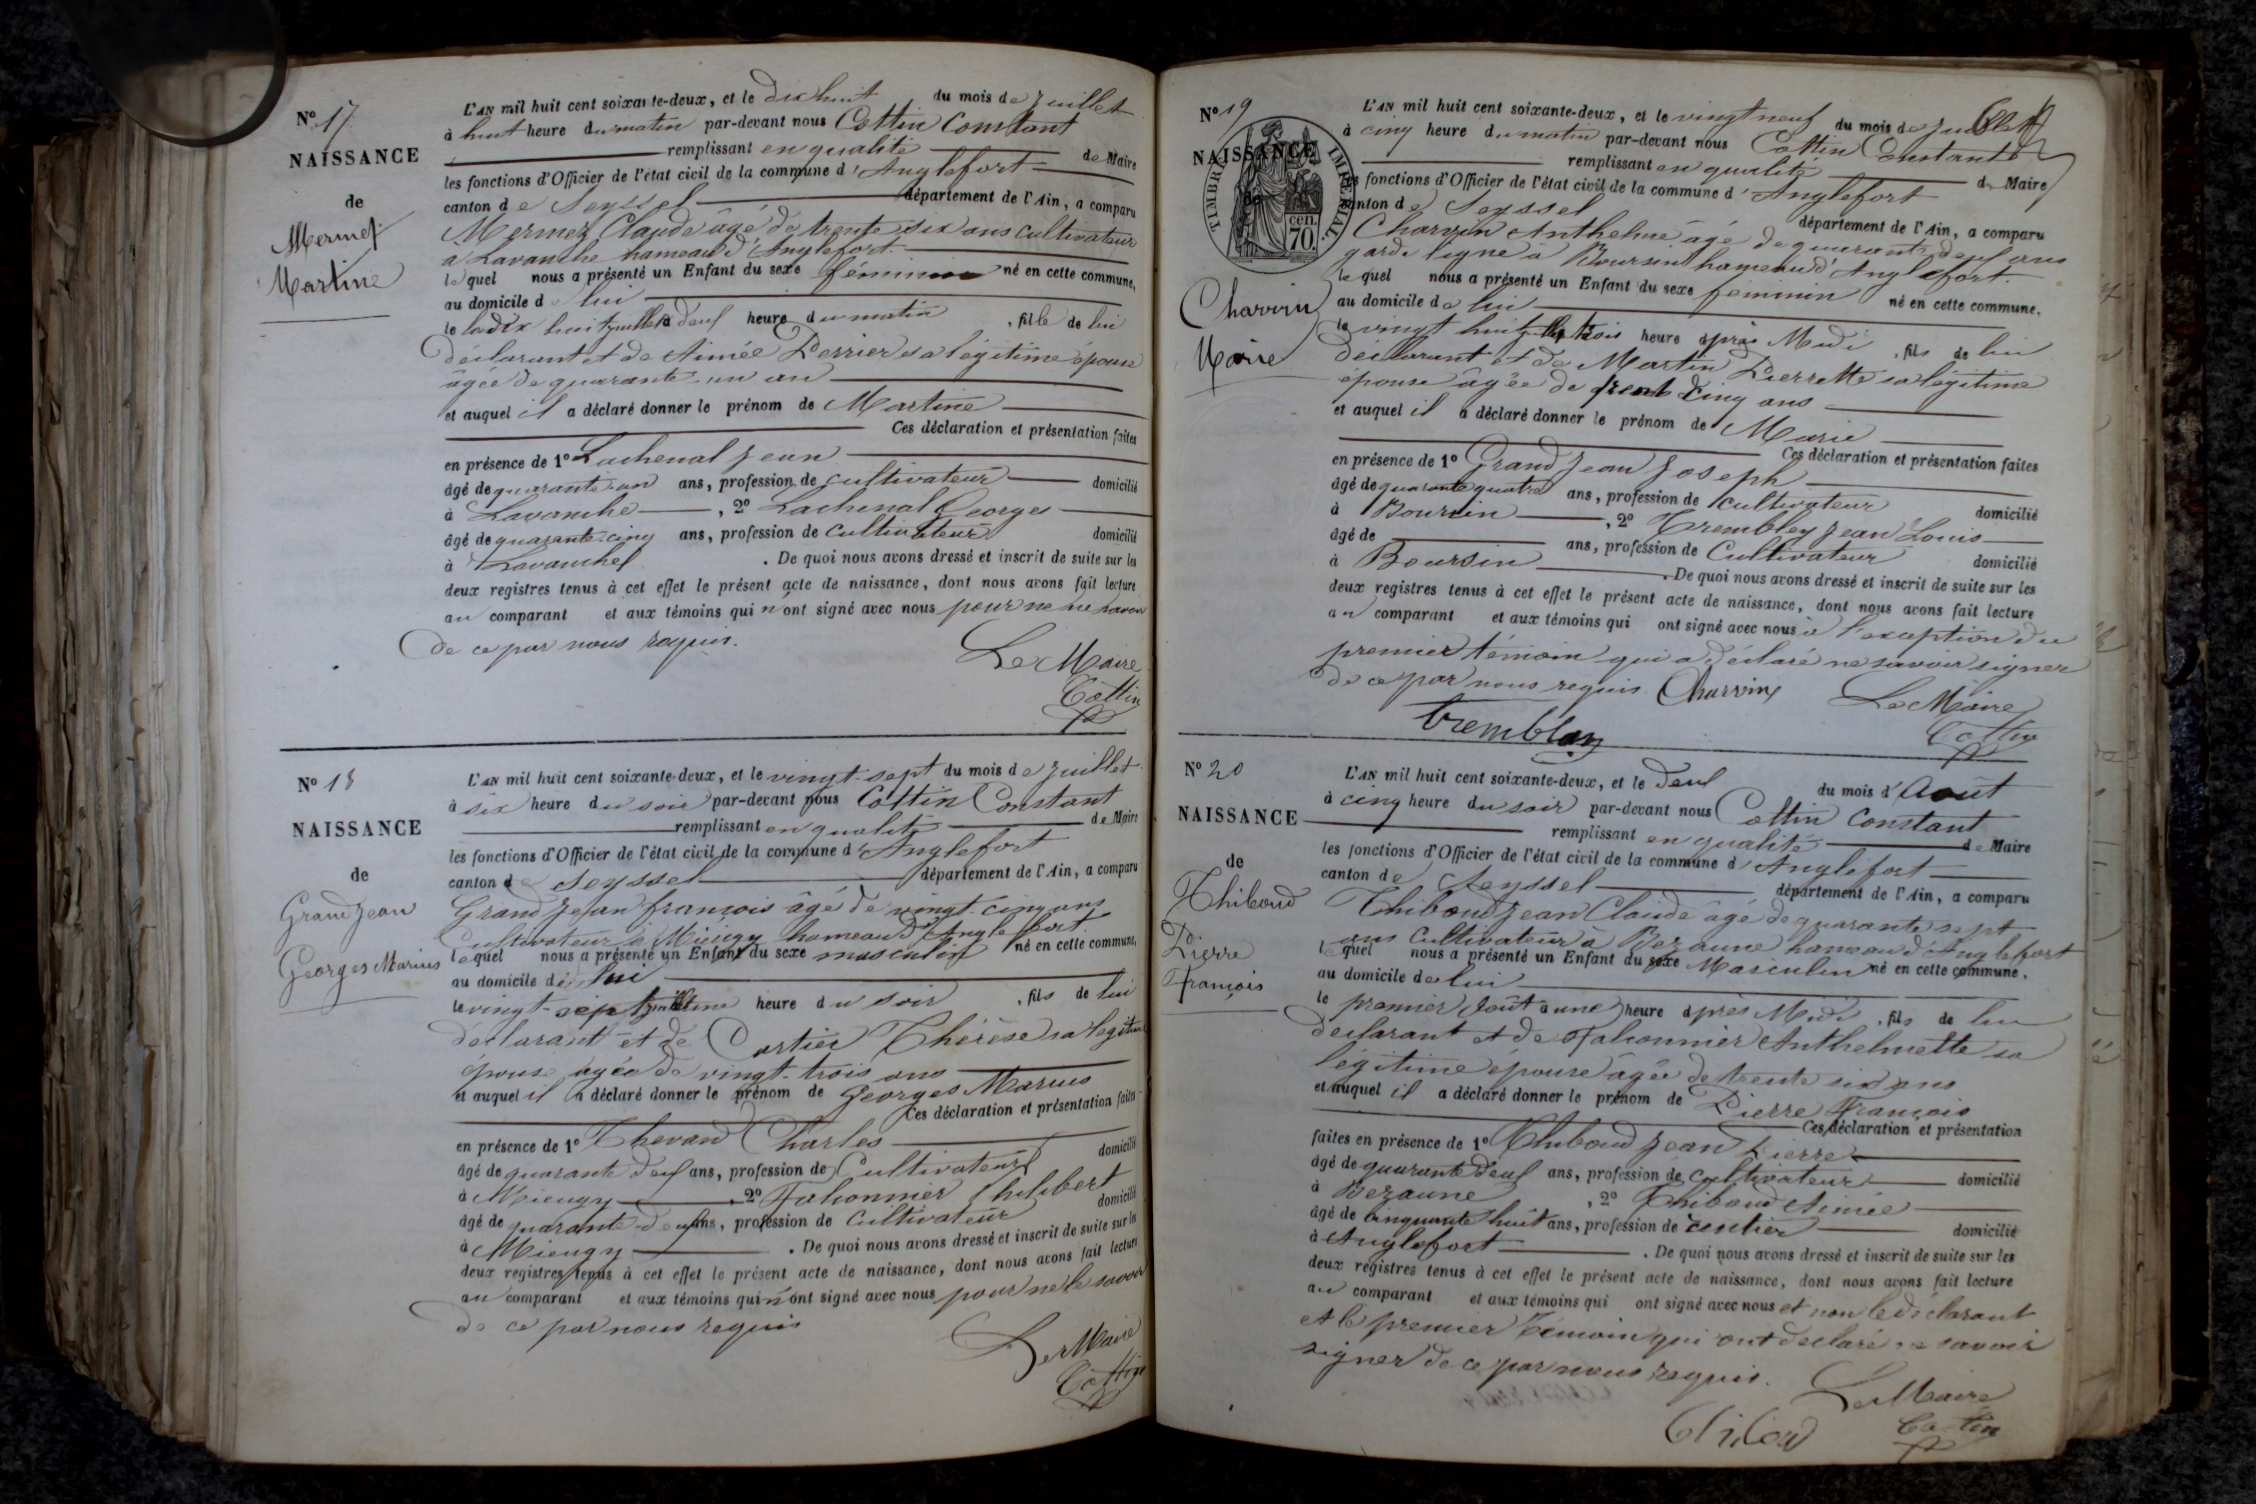 Nº 17
NAISSANCE
de
Mermet
Martine
L'AN mil huit cent soixante-deux, et le dix huit du mois de juillet
à huit heure du matin par-devant nous Cottin Constant
remplissant en qualité de Maire
les fonctions d'Officier de l'état civil de la commune d'Anglefort
canton de Seyssel département de l'Ain, a comparu
Mermet Claude âgé de trente six ans cultivateur
à Lavanche hameau d'Anglefort
lequel nous a présenté un Enfant du sexe féminin né en cette commune,
au domicile de lui
le dix huit juillet à deux heure du matin, fille de lui
déclarant et de Aimée Perrier sa légitime épouse
âgée de quarante un an
et auquel il a déclaré donner le prénom de Martine
Ces déclaration et présentation faites
en présence de 1º Lachenal Jean
âgé de quarante un ans, profession de cultivateur domicilié
à Lavanche, 2º Lachenal Georges
âgé de quarante cinq ans, profession de cultivateur domicilié
à Lavanche. De quoi nous avons dressé et inscrit de suite sur les
deux registres tenus à cet effet le présent acte de naissance, dont nous avons fait lecture
au comparant et aux témoins qui n'ont signé avec nous pour ne le savoir
de ce par nous requis.
Le Maire
Cottin
Nº 18
NAISSANCE
de
Grand Jean
Georges Marius
L'AN mil huit cent soixante-deux, et le vingt-sept du mois de juillet
à six heure du soir par-devant nous Cottin Constant
remplissant en qualité de Maire
les fonctions d'Officier de l'état civil de la commune d'Anglefort
canton de Seyssel département de l'Ain, a comparu
Grand Jean françois âgé de vingt-cinq ans
Cultivateur à Mieugy hameau d'Anglefort
lequel nous a présenté un Enfant du sexe masculin né en cette commune,
au domicile de lui
le vingt-sept juillet heure du soir, fils de lui
déclarant et de Cartier Thérèse sa légitime
épouse âgée de vingt-trois ans
et auquel il a déclaré donner le prénom de Georges Marius
Ces déclaration et présentation faites
en présence de 1º Thevand Charles
âgé de quarante deux ans, profession de Cultivateur domicilié
à Mieugy, 2º Falconnier Philibert
âgé de quarante deux ans, profession de Cultivateur domicilié
à Mieugy. De quoi nous avons dressé et inscrit de suite sur les
deux registres tenus à cet effet le présent acte de naissance, dont nous avons fait lecture
au comparant et aux témoins qui n'ont signé avec nous pour ne le savoir
de ce par nous requis
Le Maire
Cottin
Nº 19
NAISSANCE
de
TIMBRE IMPERIAL
cen.
70.
Charvin
Marie
L'AN mil huit cent soixante-deux, et le vingt neuf du mois de juillet
à cinq heure du matin par-devant nous Cottin Constant
remplissant en qualité de Maire
les fonctions d'Officier de l'état civil de la commune d'Anglefort
canton de Seyssel département de l'Ain, a comparu
Charvin Anthelme âgé de quarante deux ans
garde ligne à Boursin hameau d'Anglefort.
lequel nous a présenté un Enfant du sexe féminin né en cette commune,
au domicile de lui
le vingt huit trois heure après Midi, fils de lui
déclarant et de Martin Pierrette sa légitime
épouse âgée de trente cinq ans
et auquel il a déclaré donner le prénom de Marie
Ces déclaration et présentation faites
en présence de 1º Grand Jean Joseph
âgé de quarante quatre ans, profession de cultivateur domicilié
à Boursin, 2º Trembley Jean Louis
âgé de ans, profession de Cultivateur domicilié
à Boursin. De quoi nous avons dressé et inscrit de suite sur les
deux registres tenus à cet effet le présent acte de naissance, dont nous avons fait lecture
au comparant et aux témoins qui ont signé avec nous à l'exception du
premier témoin qui a déclaré ne savoir signer
de ce par nous requis Charvin Le Maire
tremblay Cottin
Nº 20
NAISSANCE
de
Thiboud
Pierre
François
L'AN mil huit cent soixante-deux, et le deux du mois d'Août
à cinq heure du soir par-devant nous Cottin Constant
remplissant en qualité de Maire
les fonctions d'Officier de l'état civil de la commune d'Anglefort
canton de Seyssel département de l'Ain, a comparu
Thiboud Jean Claude âgé de quarante sept
ans Cultivateur à Bezaune hameau d'Anglefort
lequel nous a présenté un Enfant du sexe Masculin né en cette commune,
au domicile de lui
le premier Août à une heure après Midi, fils de lui
déclarant et de Falconnier Anthelmette sa
légitime épouse âgée de trente six ans
et auquel il a déclaré donner le prénom de Pierre François
Ces déclaration et présentation
faites en présence de 1º Thiboud Jean Pierre
âgé de quarante deux ans, profession de cultivateur domicilié
à Bezaune, 2º Thiboud Aimée
âgé de cinquante huit ans, profession de rentier domicilié
à Anglefort. De quoi nous avons dressé et inscrit de suite sur les
deux registres tenus à cet effet le présent acte de naissance, dont nous avons fait lecture
au comparant et aux témoins qui ont signé avec nous et non le déclarant
et le premier témoin qui ont déclaré ne savoir
signer de ce par nous requis.
Le Maire
Thiboud Cottin